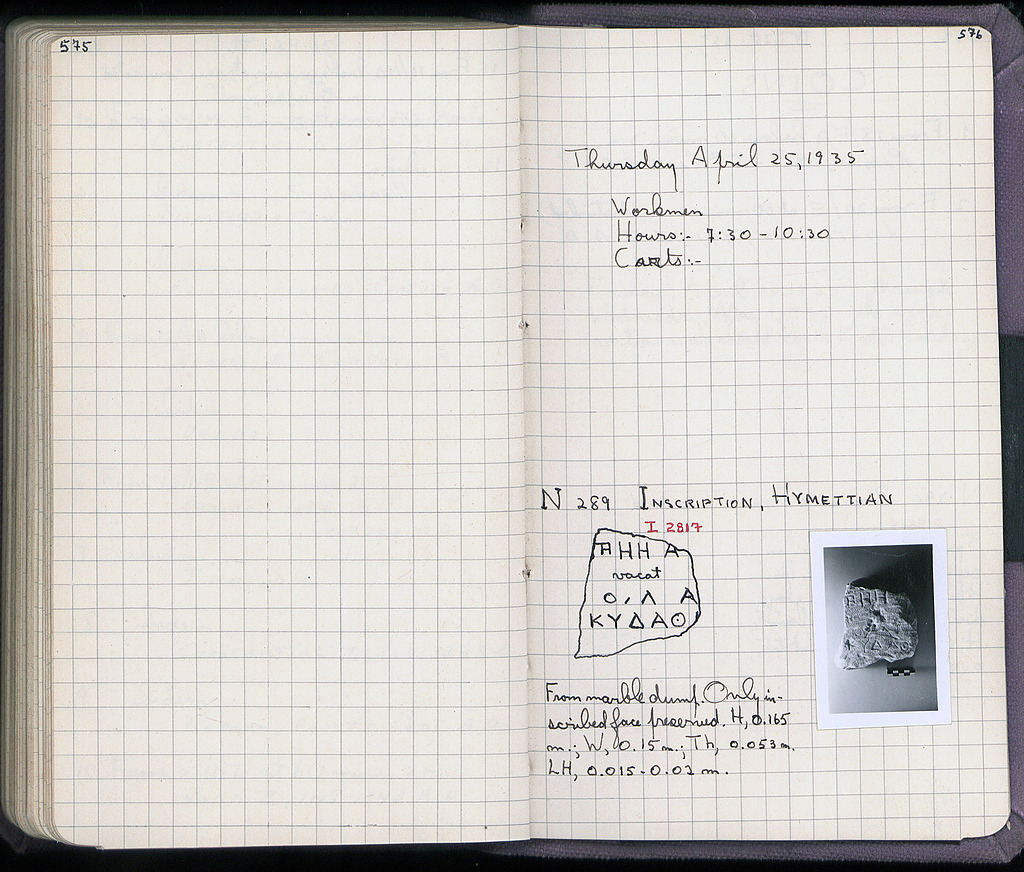 575
576
Thursday April 25, 1935
Workmen
Hours:- 7:30 - 10:30
Carts:-
N 289 INSCRIPTION, HYMETTIAN
I 2817
ΗΗ Α
vacat
Ο, Λ Α
ΚΥΔΑΘ
From marble dump. Only in-
scribed face preserved. H, 0.165
m.; W, 0.15 m.; Th, 0.053 m.
LH, 0.015-0.02 m.